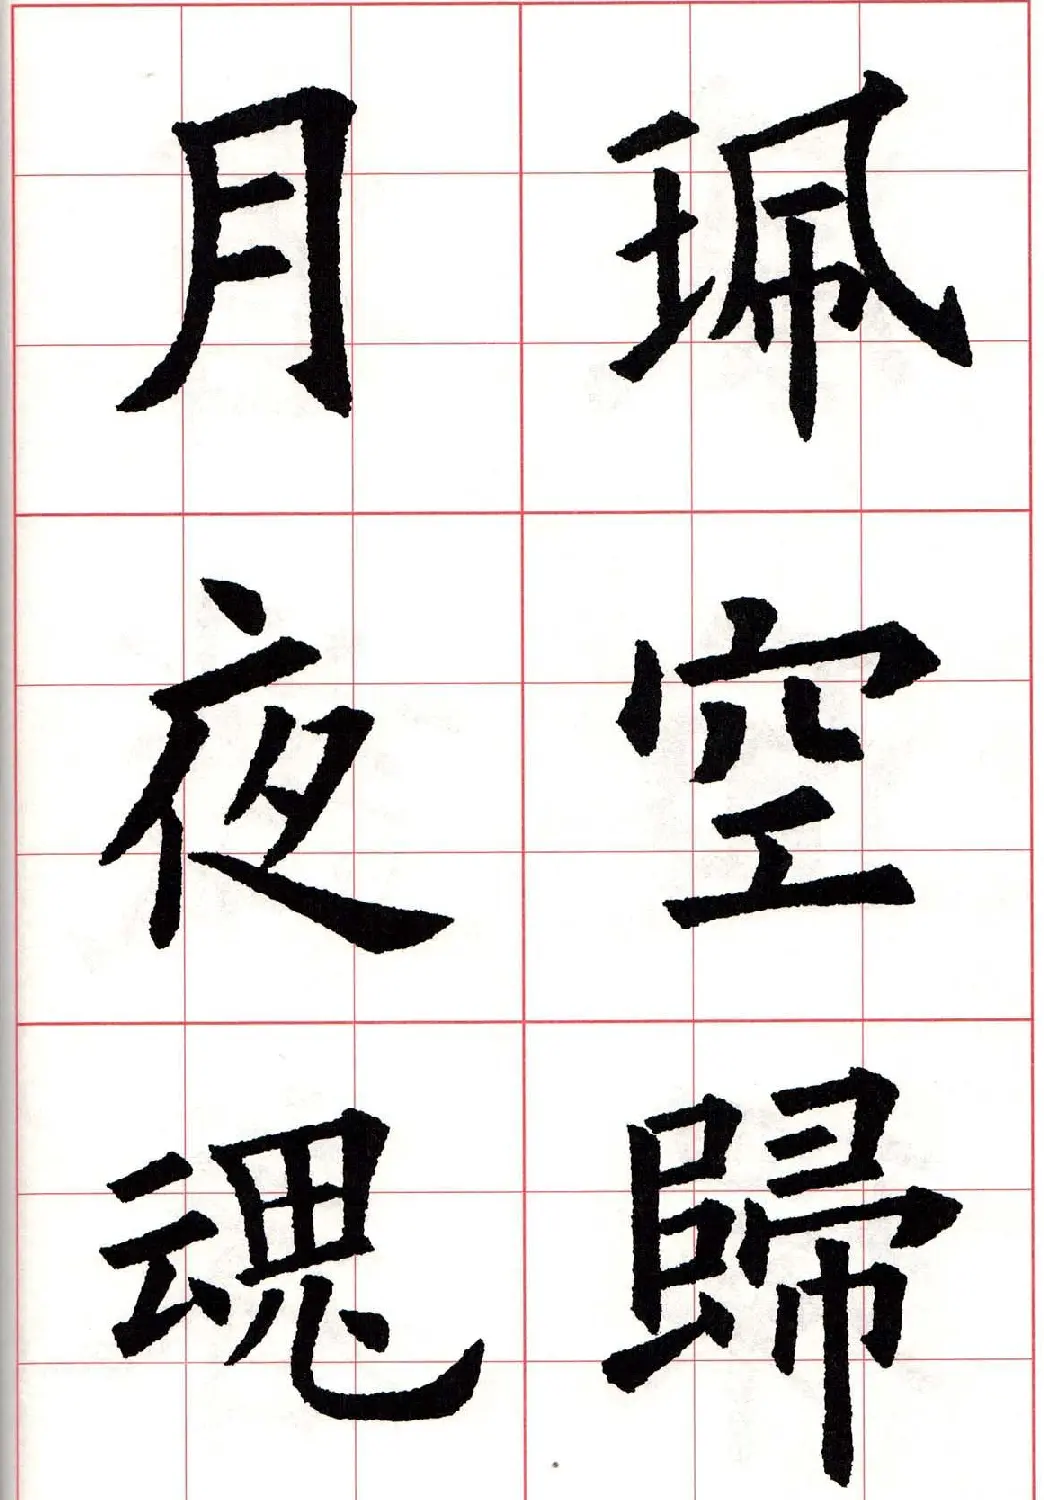 珮空歸
月夜魂